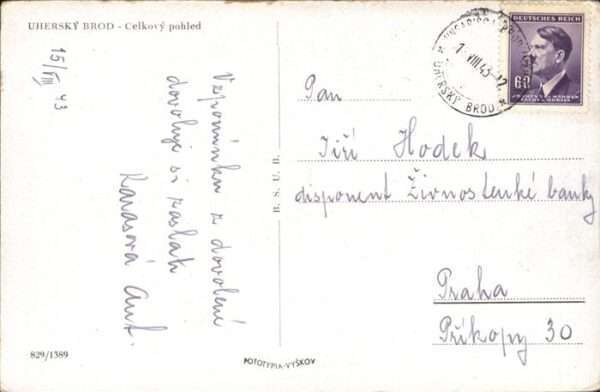 UHERSKÝ BROD - Celkový pohled
15/VIII 43
Vzpomínku z dovolené
dovoluje si zaslati
Karasová Ant.
829/1389
B. S. U. B.
FOTOTYPIA-VYŠKOV
UHERSKÝ BROD
VIII 43
DEUTSCHES REICH
60
Pan
Jiří Hodek
disponent Živnostenké banky
Praha
Příkopy 30